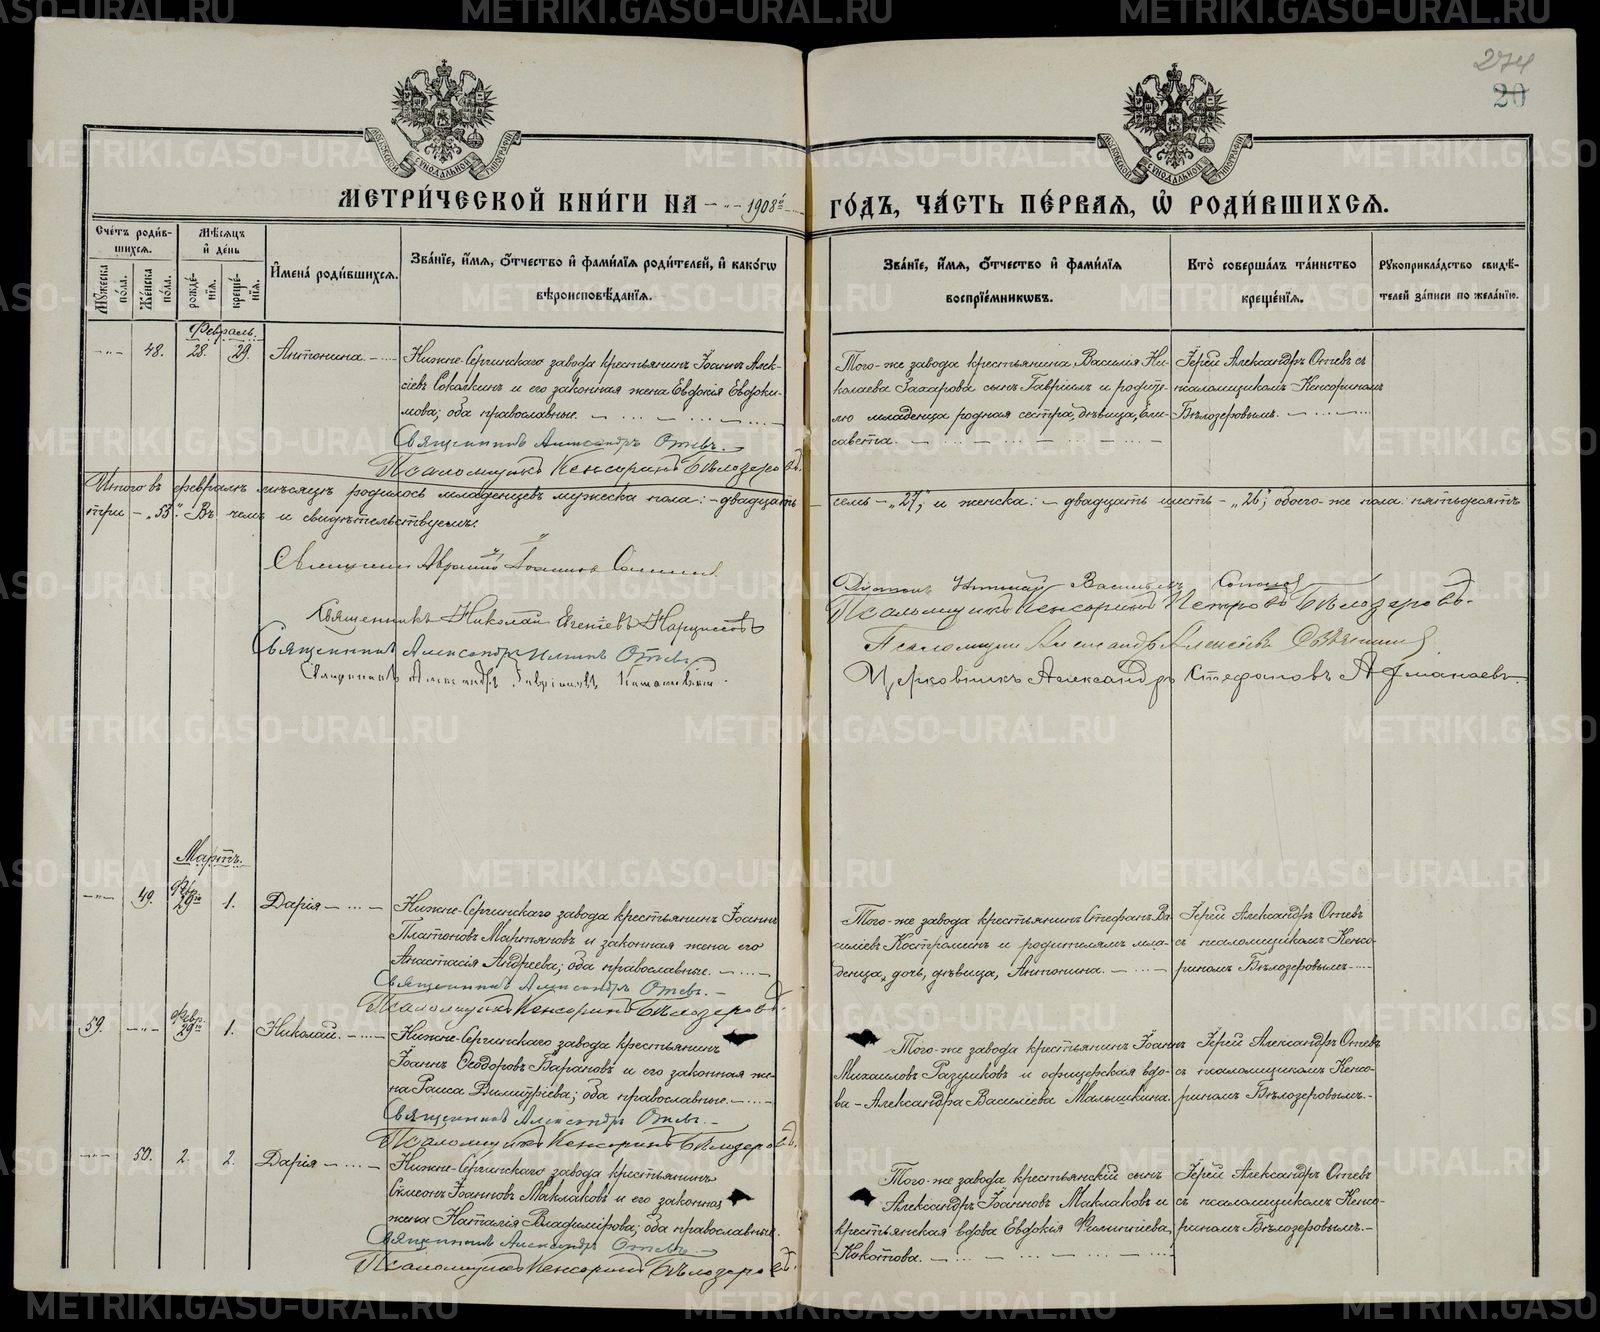 274
20
МЕТРИ́ЧЕСКОЙ КНИ́ГИ НА 1908й ГО́ДЪ, ЧА́СТЬ ПЕ́РВАЯ, Ѡ РОДИ́ВШИХСЯ.
Сче́тъ роди́вшихся.
Мꙋ́жеска по́ла.
Же́нска по́ла.
Мѣ́сяцъ и де́нь
рожде́нїя.
креще́нїя.
И҆мена̀ роди́вшихся.
Зва́нїе, и҆́мя, ѻ҆́тчество и҆ фами́лїя роди́телей, и҆ како́гѡ
вѣроисповѣ́данїя.
Зва́нїе, и҆́мя, ѻ҆́тчество и҆ фами́лїя
воспрїе́мникѡвъ.
Кто̀ соверша́лъ та́инство
креще́нїя.
Рꙋкоприкла́дство свидѣ́-
телей за́писи по жела́нїю.
Февраль.
48. 28. 29. Антонина.
Нижне-Сергинскаго завода крестьянинъ Іоаннъ Алек-
сіевъ Соколкинъ и его законная жена Евдокія Евдоки-
мова; оба православные.
Священникъ Александръ Отевъ.
Псаломщикъ Кенсоринъ Бѣлозеровъ.
Того-же завода крестьянина Василія Ни-
колаева Захарова сынъ Гавріилъ и родите-
лю младенца родная сестра, дѣвица, Ели-
савета.
Іерей Александръ Отевъ съ
псаломщикомъ Кенсориномъ
Бѣлозеровымъ.
Итого въ февралѣ мѣсяцѣ родилось младенцевъ мужеска пола: – двадцать семь – „27“, и женска: – двадцать шесть – „26“; обоего-же пола: пятьдесятъ
три – „53“. Въ чемъ и свидѣтельствуемъ:
Священникъ
Священникъ Николай Евгеніевъ Нарциссовъ
Священникъ Александръ Отевъ
Священникъ Александръ Гавріиловъ
Діаконъ Васильевъ
Псаломщикъ Кенсоринъ Петровъ Бѣлозеровъ.
Псаломщикъ Александръ Алексіевъ
Церковникъ Александръ Стефановъ
Мартъ.
49. Фвр. 29го 1. Дарія
Нижне-Сергинскаго завода крестьянинъ Іоаннъ
Платоновъ Мартьяновъ и законная жена его
Анастасія Андреева; оба православные.
Священникъ Александръ Отевъ.
Псаломщикъ Кенсоринъ Бѣлозеровъ.
Того-же завода крестьянинъ Стефанъ Ва-
силіевъ Костроминъ и родителямъ мла-
денца, дочь, дѣвица, Антонина.
Іерей Александръ Отевъ
съ псаломщикомъ Кенсо-
риномъ Бѣлозеровымъ.
59. Февр. 29го 1. Николай.
Нижне-Сергинскаго завода крестьянинъ
Іоаннъ Ѳеодоровъ Барановъ и его законная же-
на Раиса Димитріева; оба православные.
Священникъ Александръ Отевъ.
Псаломщикъ Кенсоринъ Бѣлозеровъ.
Того-же завода крестьянинъ Іоаннъ
Михаиловъ Разушковъ и офицерская вдо-
ва – Александра Василіева Малышкина.
Іерей Александръ Отевъ
съ псаломщикомъ Кенсо-
риномъ Бѣлозеровымъ.
50. 2. 2. Дарія
Нижне-Сергинскаго завода крестьянинъ
Симеонъ Іоанновъ Маклаковъ и его законная
жена Наталія Владимірова; оба православные.
Священникъ Александръ Отевъ
Псаломщикъ Кенсоринъ Бѣлозеровъ.
Того-же завода крестьянскій сынъ
Александръ Іоанновъ Маклаковъ и
крестьянская вдова Евдокія Филиппіева
Кокотова.
Іерей Александръ Отевъ
съ псаломщикомъ Кенсо-
риномъ Бѣлозеровымъ.
METRIKI.GASO-URAL.RU